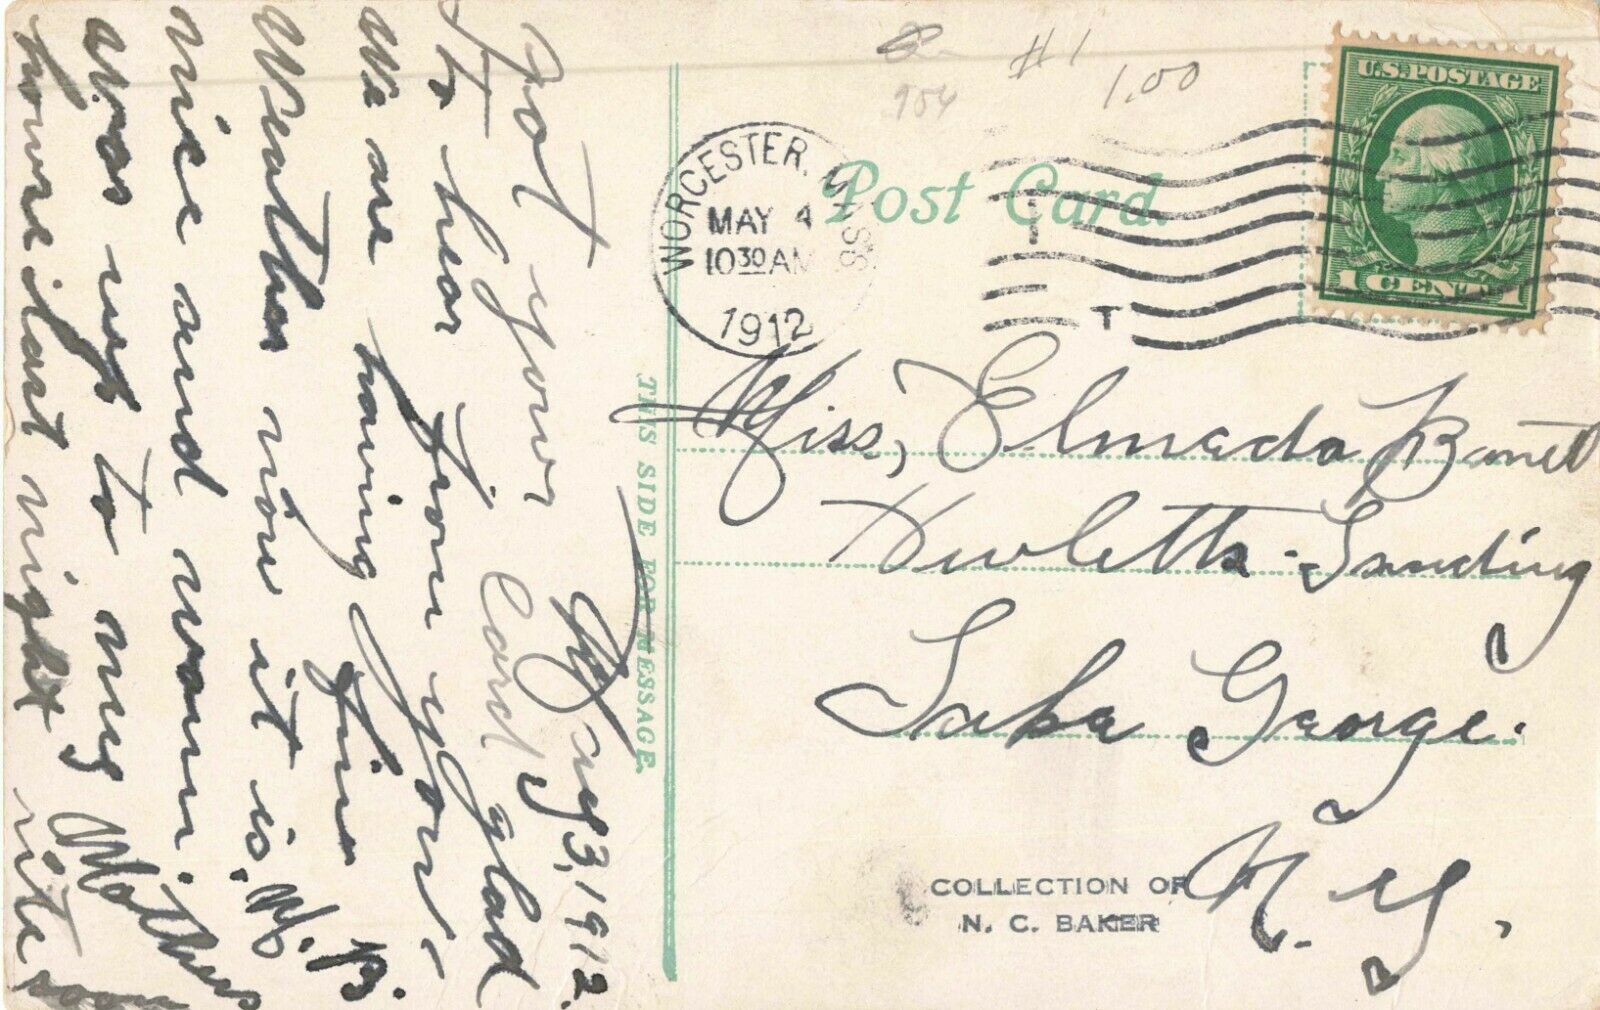 904
#1
1.00
U.S. POSTAGE
1 CENT 1
WORCESTER, MASS
MAY 4
10 30 AM
1912
T
Post Card.
THIS SIDE FOR MESSAGE.
May 3, 1912.
Got your Card, glad
to hear from you.
We are having fine
Weather now it is
nice and warm.
was up to my Mothers
house last night rite soon
M. B.
Miss, Elmeda
Huletts-Landing
Lake George.
N. Y.
COLLECTION OF
N. C. BAKER